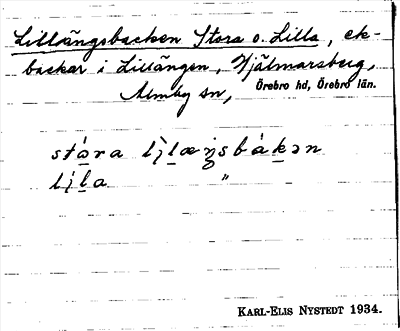 Lillängsbacken Stora o. Lilla, ek-
backar i Lillängen, Hjälmarsberg,
Almby sn, Örebro hd, Örebro län.
stóra lìlæŋsbákən
líla "
KARL-ELIS NYSTEDT 1934.